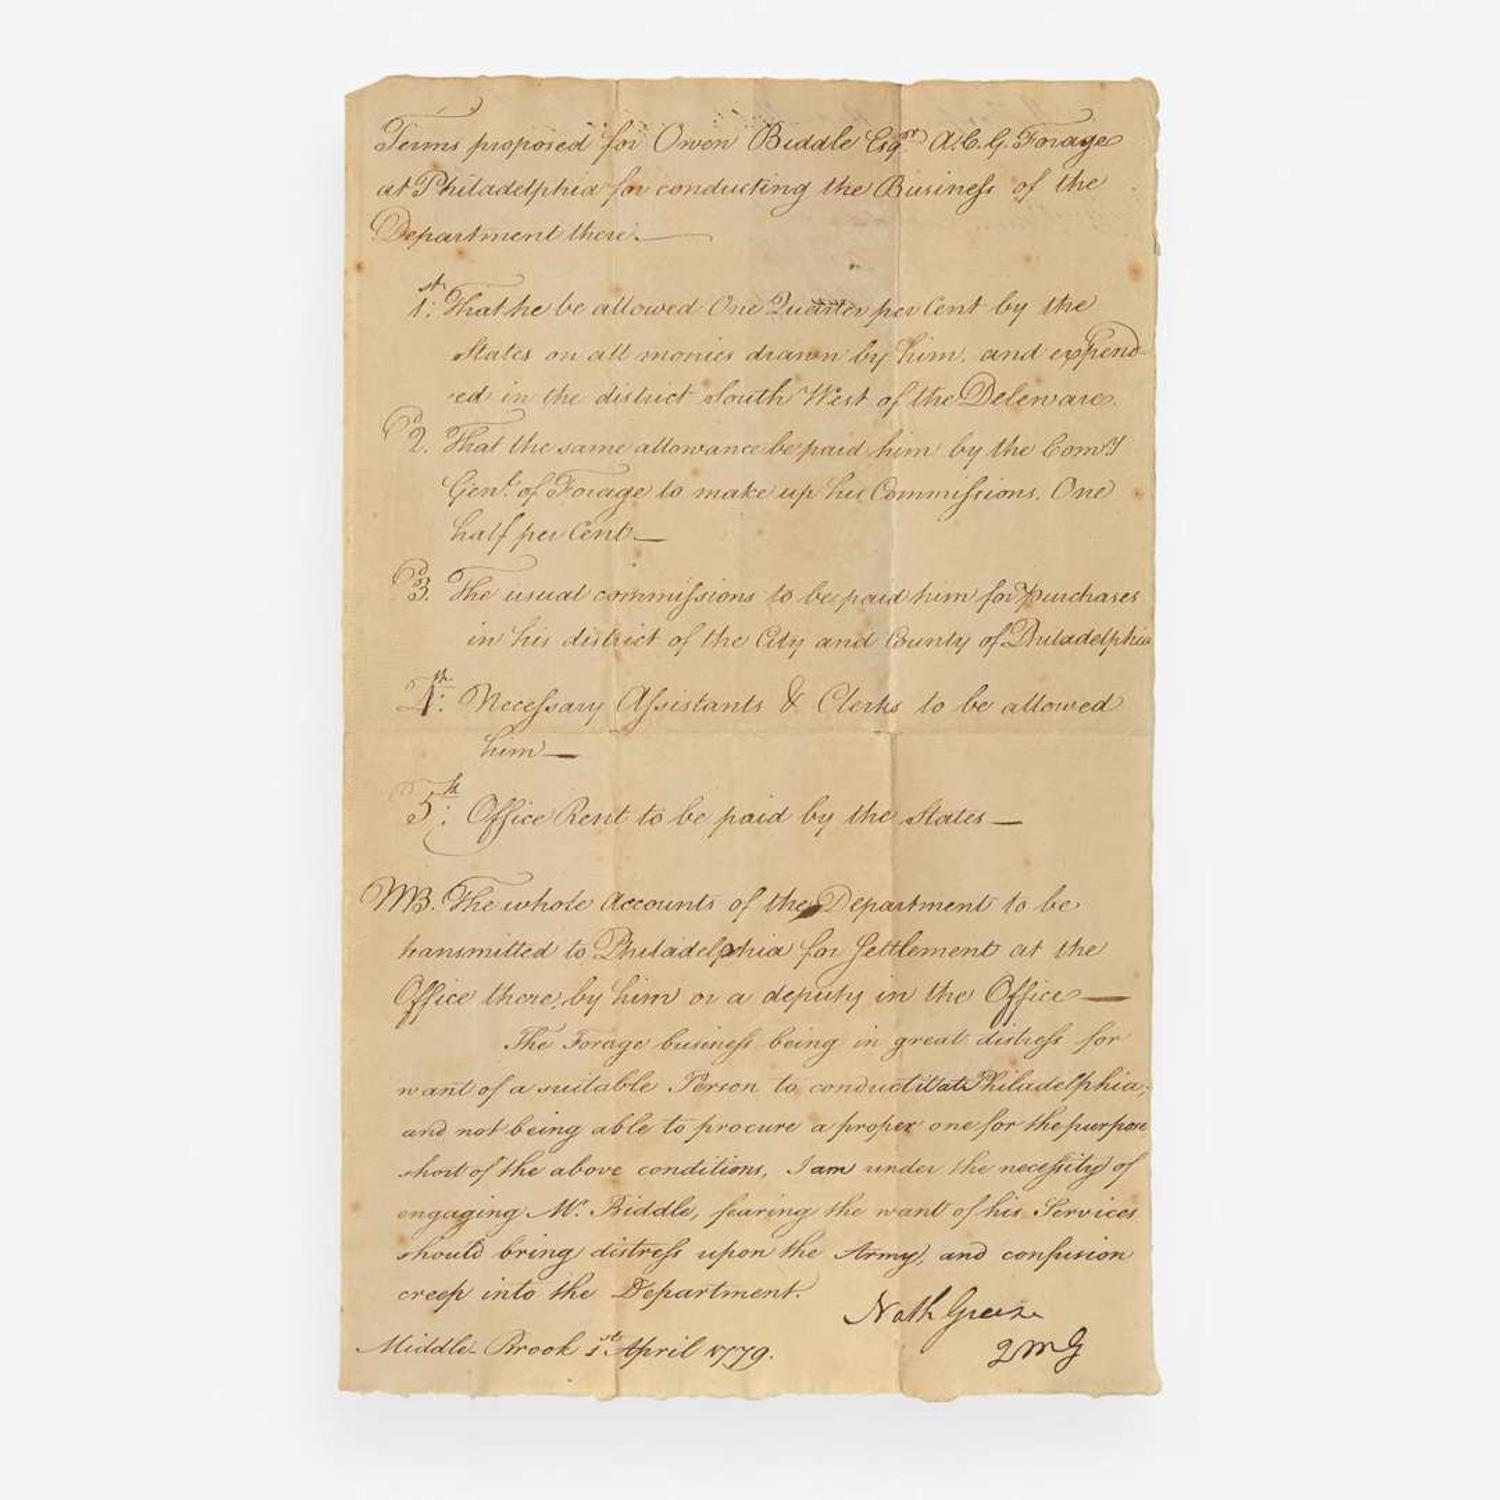 Terms proposed for Owen Biddle Esqr. A.C.G. Forage
at Philadelphia for conducting the Business of the
Department there.
1st. That he be allowed One Quarter per Cent by the
States on all monies drawn by him, and expend-
ed in the district South West of the Deleware.
2d. That the same allowance be paid him by the Comy
Genl. of Forage to make up his Commissions. One
half per Cent.
3d. The usual commissions to be paid him for purchases
in his district of the City and County of Philadelphia
4th. Necessary Assistants & Clerks to be allowed
him
5th. Office Rent to be paid by the States
NB. The whole Accounts of the Department to be
transmitted to Philadelphia for Settlement at the
Office there, by him or a deputy in the Office
The Forage business being in great distress for
want of a suitable Person to conduct it at Philadelphia;
and not being able to procure a proper one for the purpose
short of the above conditions, I am under the necessity of
engaging Mr. Biddle, fearing the want of his Services
should bring distress upon the Army, and confusion
creep into the Department.
Nath Greene
QMG
Middle Brook 1st April 1779.